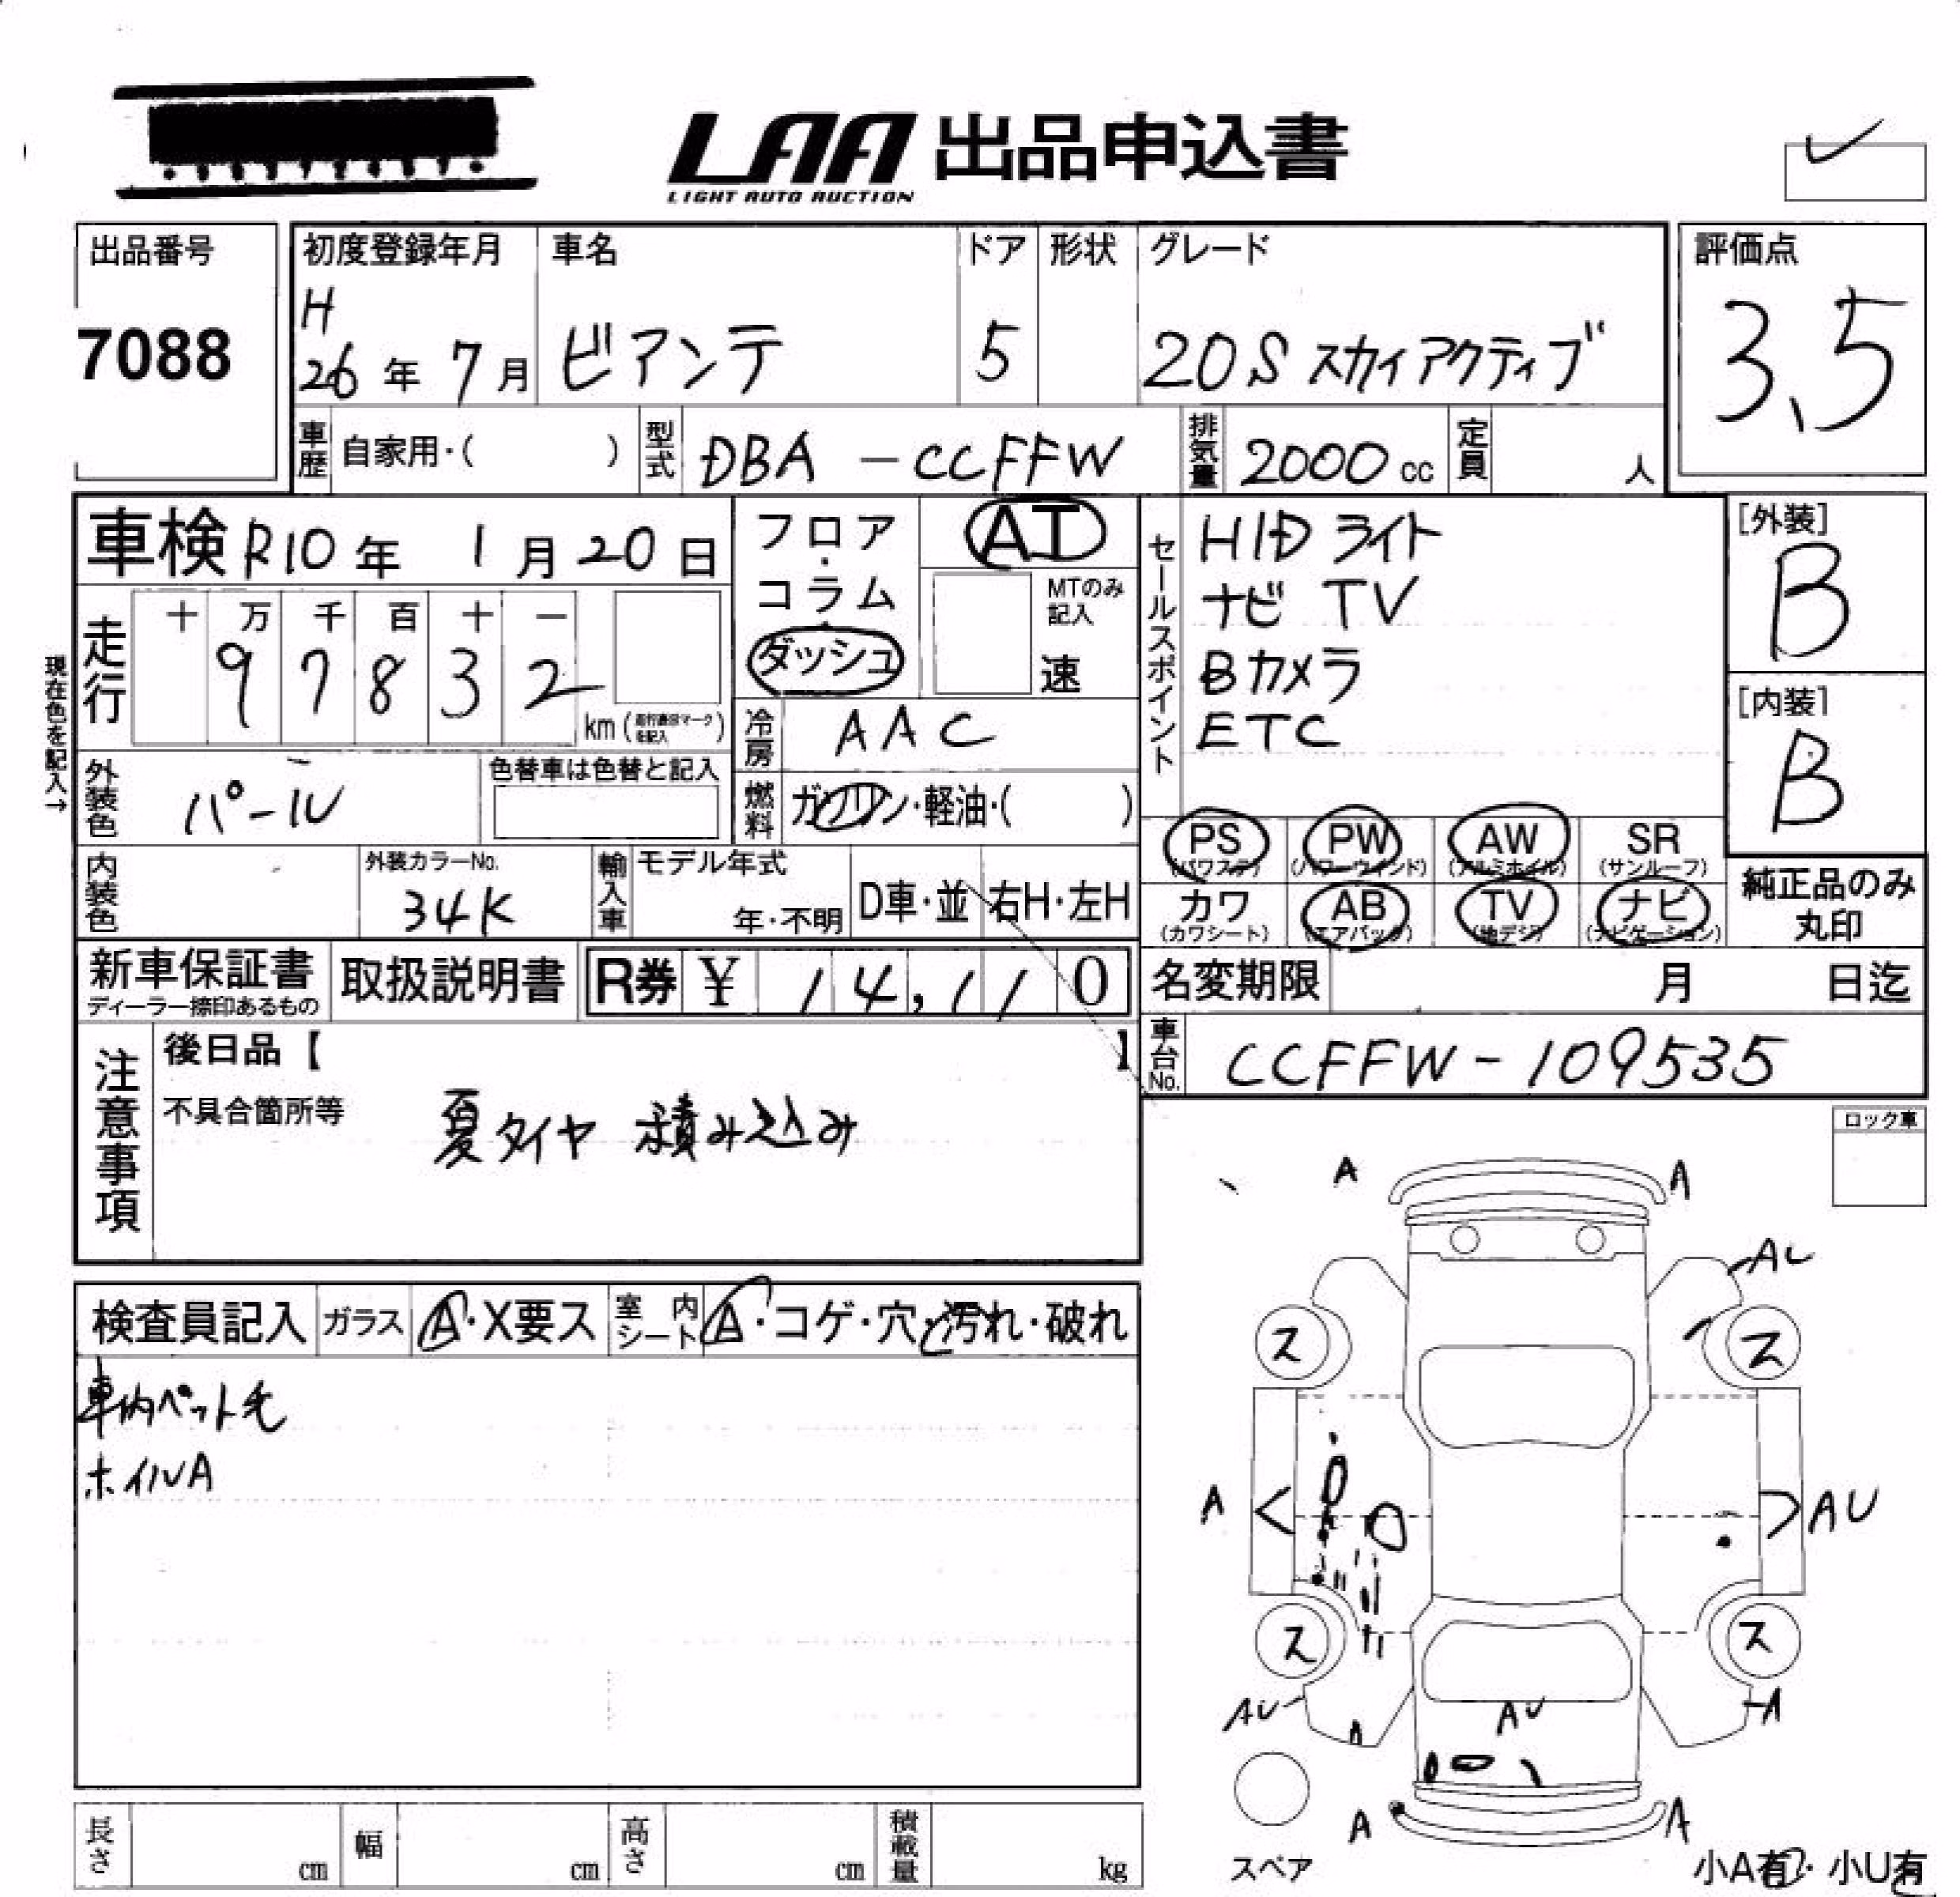 LAA 出品申込書
LIGHT AUTO AUCTION
出品番号 初度登録年月 車名 ドア 形状 グレード 評価点
7088 H 26年 7月 ビアンテ 5 20S スカイアクティブ 3.5
車歴 自家用・( ) 型式 DBA-CCFFW 排気量 2000 cc 定員 人
車検 R10年 1月 20日 フロア・コラム ダッシュ AT
MTのみ記入 速
セールスポイント
HIDライト
ナビ TV
Bカメラ
ETC
[外装]
B
[内装]
B
現在色を記入→
走行 十 万 千 百 十 一
9 7 8 3 2 km
冷房 AAC
外装色 パール 色替車は色替と記入
燃料 ガソリン・軽油・( )
PS (パワステ) PW (パワーウインド) AW (アルミホイル) SR (サンルーフ)
カワ (カワシート) AB (エアバック) TV (地デジ) ナビ (ナビゲーション)
純正品のみ丸印
内装色 外装カラーNo. 34K 輸入車 モデル年式 年・不明 D車・並 右H・左H
新車保証書 ディーラー捺印あるもの 取扱説明書 R券 ¥ 14,110 名変期限 月 日迄
注意事項 後日品【 】
車台No. CCFFW-109535
不具合箇所等 夏タイヤ 積み込み
ロック車
検査員記入 ガラス A・X要ス 室内シート A・コゲ・穴・汚れ・破れ
車内ペット毛
ホイルA
A A
AU
ス ス
A AU
ス ス
AU A AU A
A A
スペア
小A有・小U有
長さ cm 幅 cm 高さ cm 積載量 kg